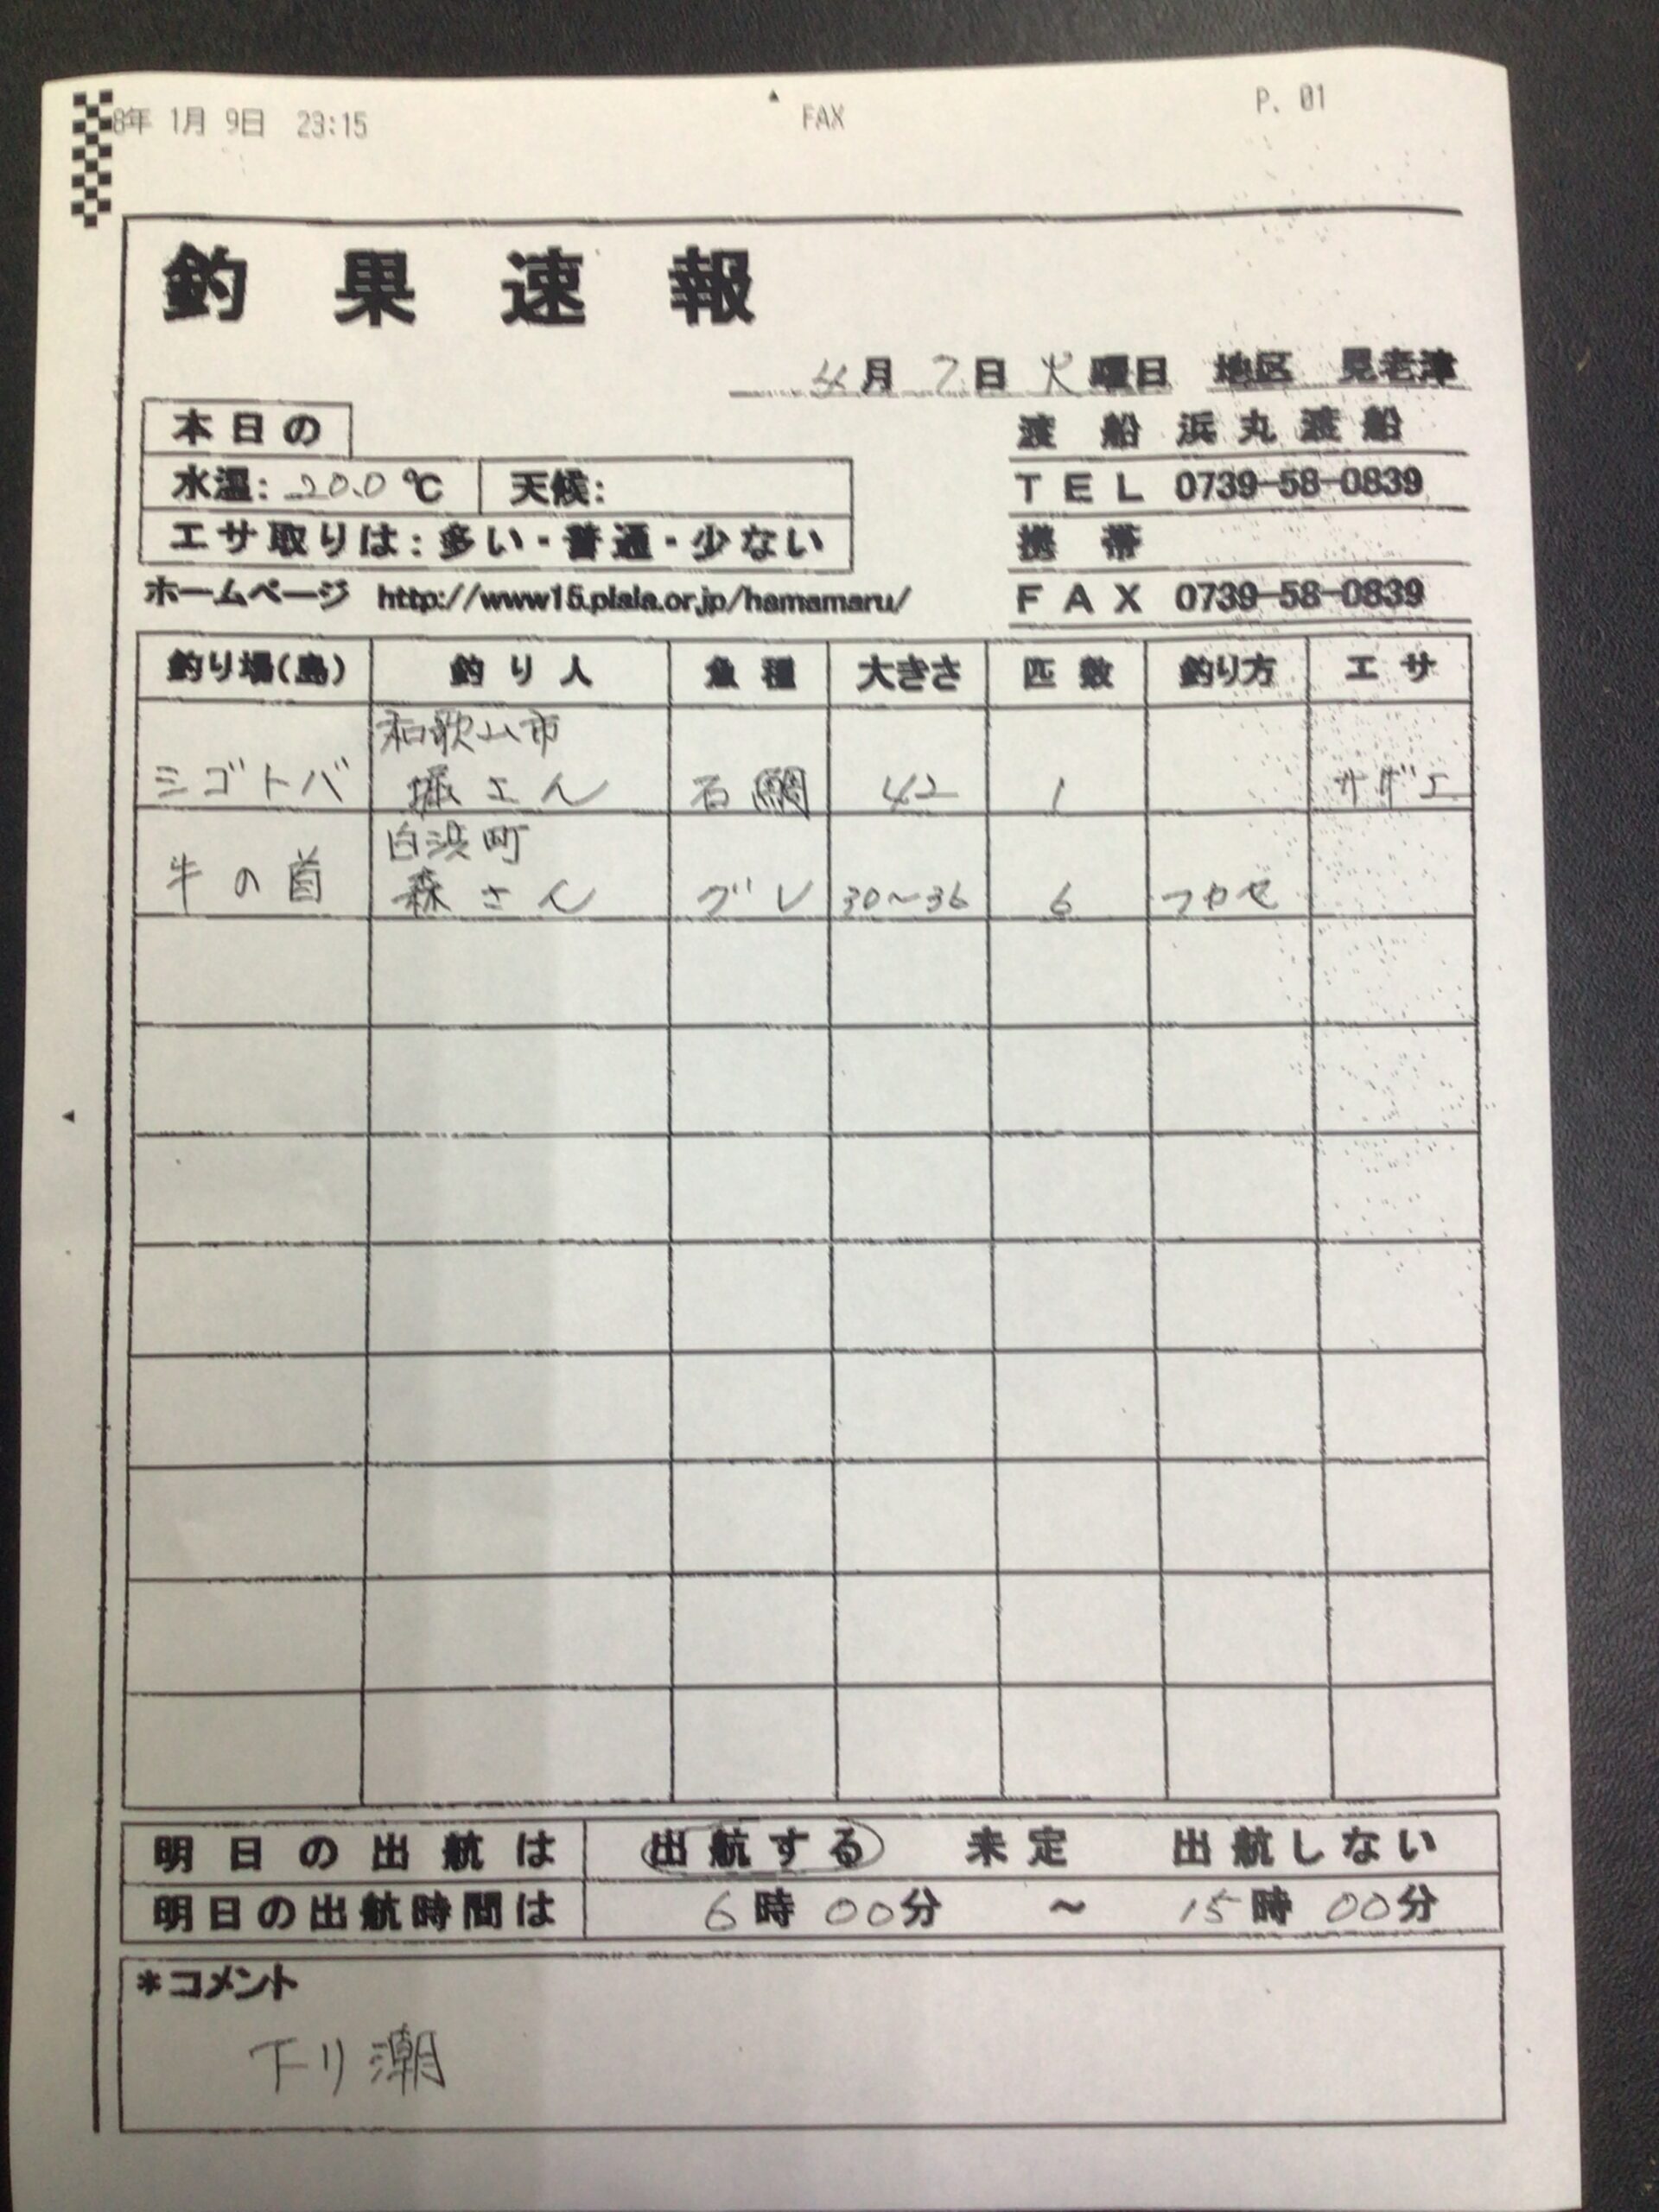 8年 1月 9日 23:15 FAX P. 01
釣果速報
4月 7日 火曜日 地区 見老津
本日の
渡船 浜丸渡船
水温: 20.0 ℃ 天候:
TEL 0739-58-0839
エサ取りは: 多い・普通・少ない
携帯
ホームページ http://www15.plala.or.jp/hamamaru/
FAX 0739-58-0839
釣り場(島) 釣り人 魚種 大きさ 匹数 釣り方 エサ
和歌山市
シゴトバ 堀さん 石鯛 42 1 サザエ
白浜町
牛の首 森さん グレ 30~36 6 フカセ
明日の出航は 出航する 未定 出航しない
明日の出航時間は 6時 00分 ~ 15時 00分
*コメント
下り潮